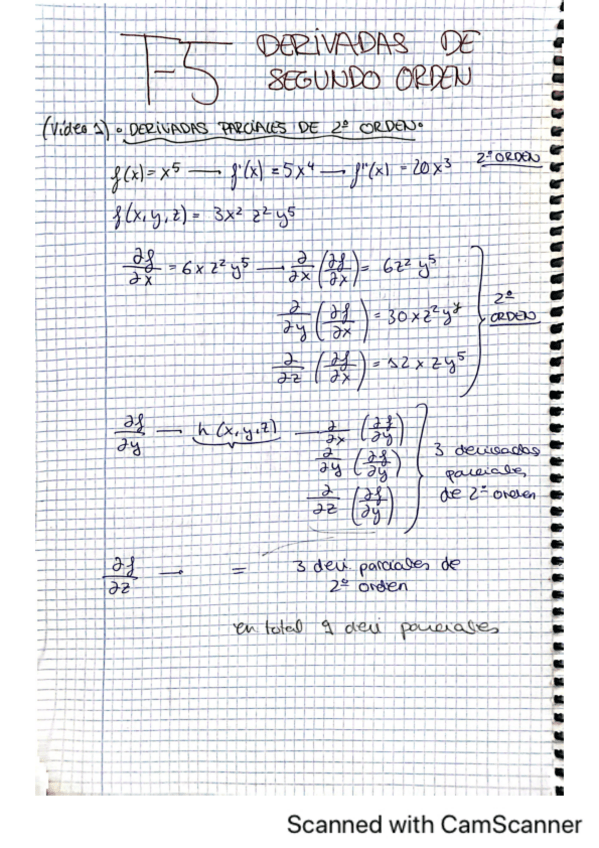 T-5 DERIVADAS DE
SEGUNDO ORDEN
(Vídeo 1) • DERIVADAS PARCIALES DE 2º ORDEN •
f(x) = x⁵ — f'(x) = 5x⁴ — f''(x) = 20x³ 2º ORDEN
f(x,y,z) = 3x² z² y⁵
∂f/∂x = 6xz²y⁵ — ∂/∂x (∂f/∂x) = 6z² y⁵
∂/∂y (∂f/∂x) = 30xz²y⁴
2º ORDEN
∂/∂z (∂f/∂x) = 12xzy⁵
∂f/∂y — h(x,y,z) — ∂/∂x (∂f/∂y)
∂/∂y (∂f/∂y)
∂/∂z (∂f/∂y)
3 derivadas
parciales
de 2º orden
∂f/∂z — = 3 deri parciales de
2º orden
en total 9 deri parciales
Scanned with CamScanner